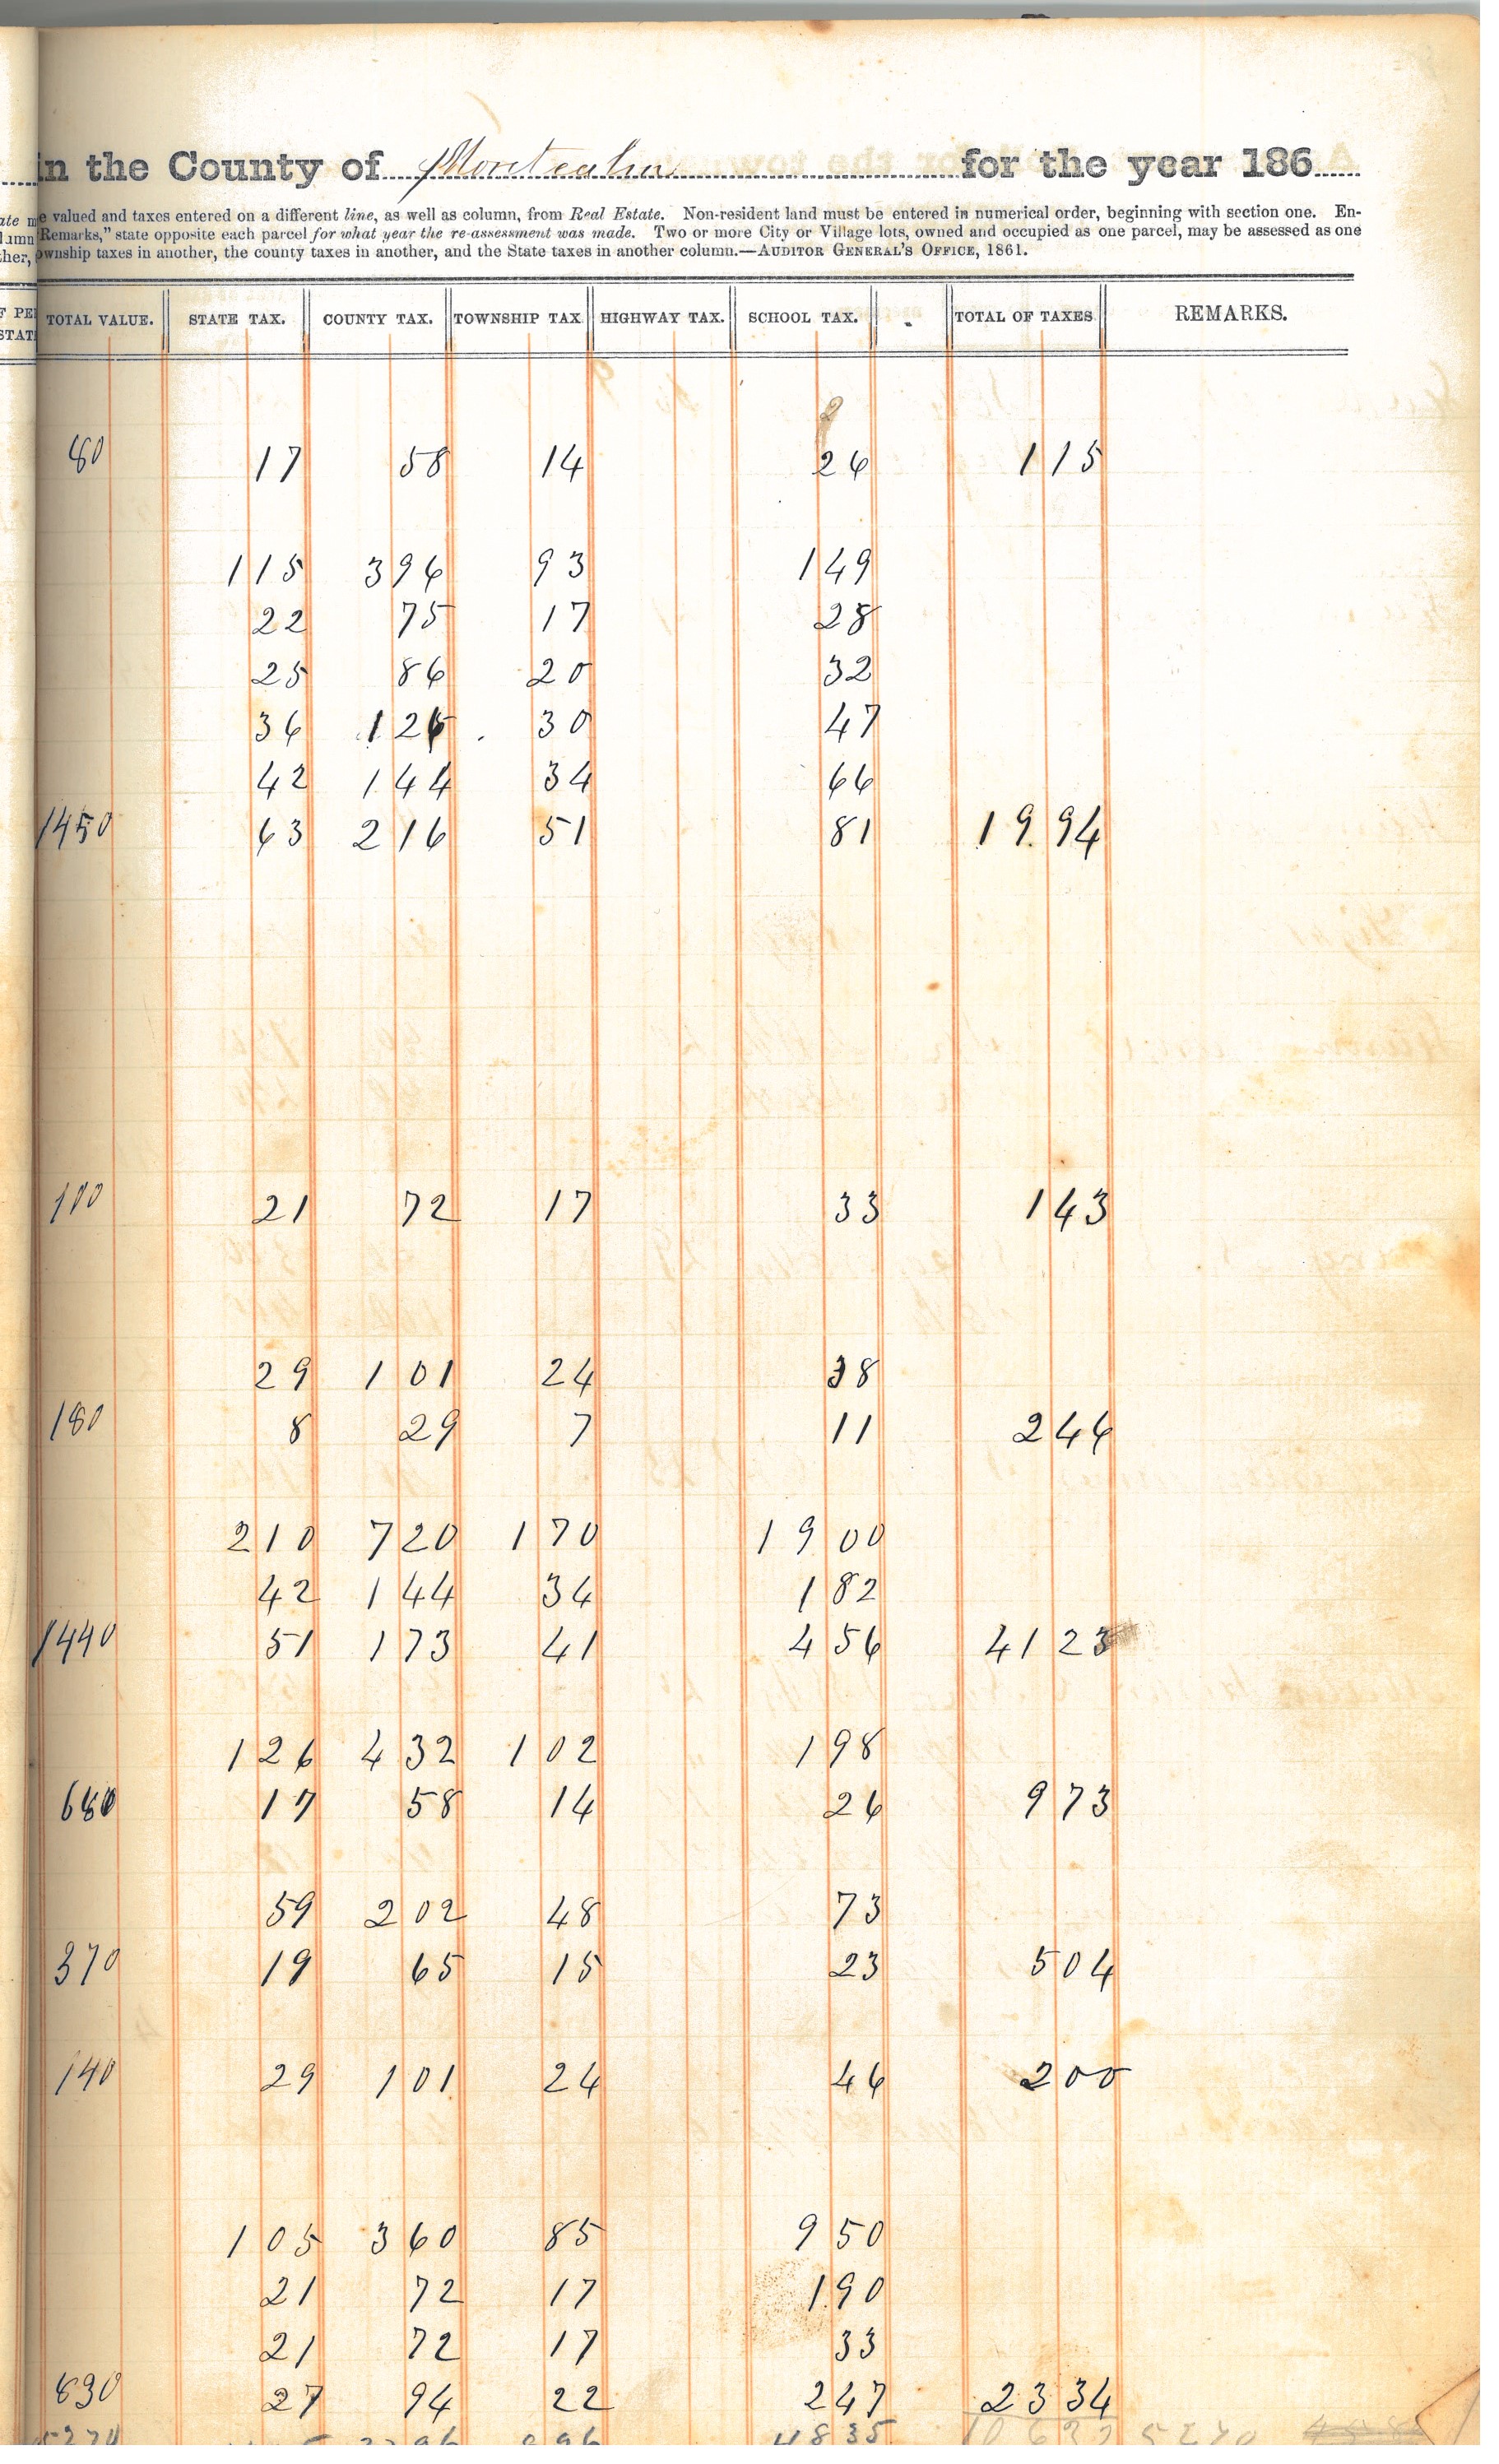 in the County of Montcalm for the year 186
e valued and taxes entered on a different line, as well as column, from Real Estate. Non-resident land must be entered in numerical order, beginning with section one. En-
"Remarks," state opposite each parcel for what year the re-assessment was made. Two or more City or Village lots, owned and occupied as one parcel, may be assessed as one
ownship taxes in another, the county taxes in another, and the State taxes in another column.—AUDITOR GENERAL'S OFFICE, 1861.
TOTAL VALUE. STATE TAX. COUNTY TAX. TOWNSHIP TAX HIGHWAY TAX. SCHOOL TAX. TOTAL OF TAXES REMARKS.
80 17 58 14 26 1 15
1 15 3 96 93 1 49
22 75 17 28
25 86 20 32
36 1 26 30 47
42 1 44 34 66
1450 63 2 16 51 81 19 94
100 21 72 17 33 1 43
29 1 01 24 38
180 8 29 7 11 2 46
2 10 7 20 1 70 19 00
42 1 44 34 1 82
1440 51 1 73 41 4 56 41 23
1 26 4 32 1 02 1 98
680 17 58 14 26 9 73
59 2 02 48 73
370 19 65 15 23 5 04
140 29 1 01 24 46 2 00
1 05 3 60 85 9 50
21 72 17 1 90
21 72 17 33
830 27 94 22 2 47 23 34
48 35 5270